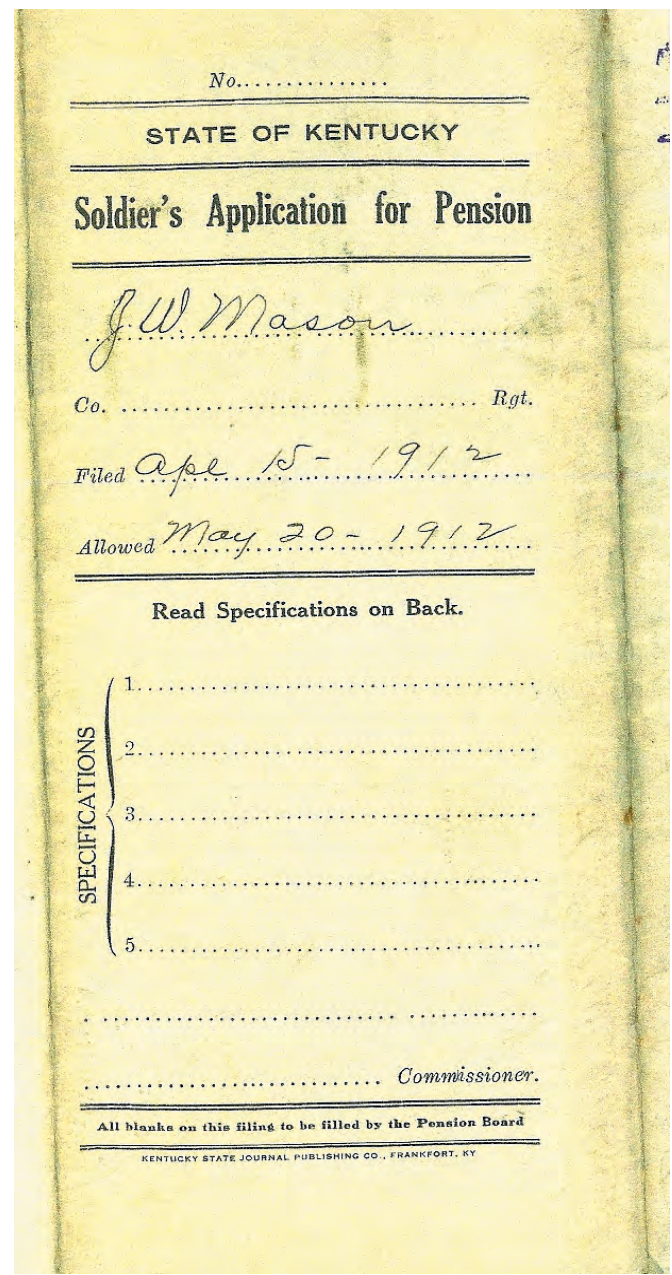 No...............
STATE OF KENTUCKY
Soldier's Application for Pension
J. W. Mason
Co. .................................. Rgt.
Filed Apl 15 - 1912
Allowed May 20 - 1912
Read Specifications on Back.
SPECIFICATIONS
1.......................................
2.......................................
3.......................................
4.......................................
5.......................................
............................ Commissioner.
All blanks on this filing to be filled by the Pension Board
KENTUCKY STATE JOURNAL PUBLISHING CO., FRANKFORT, KY